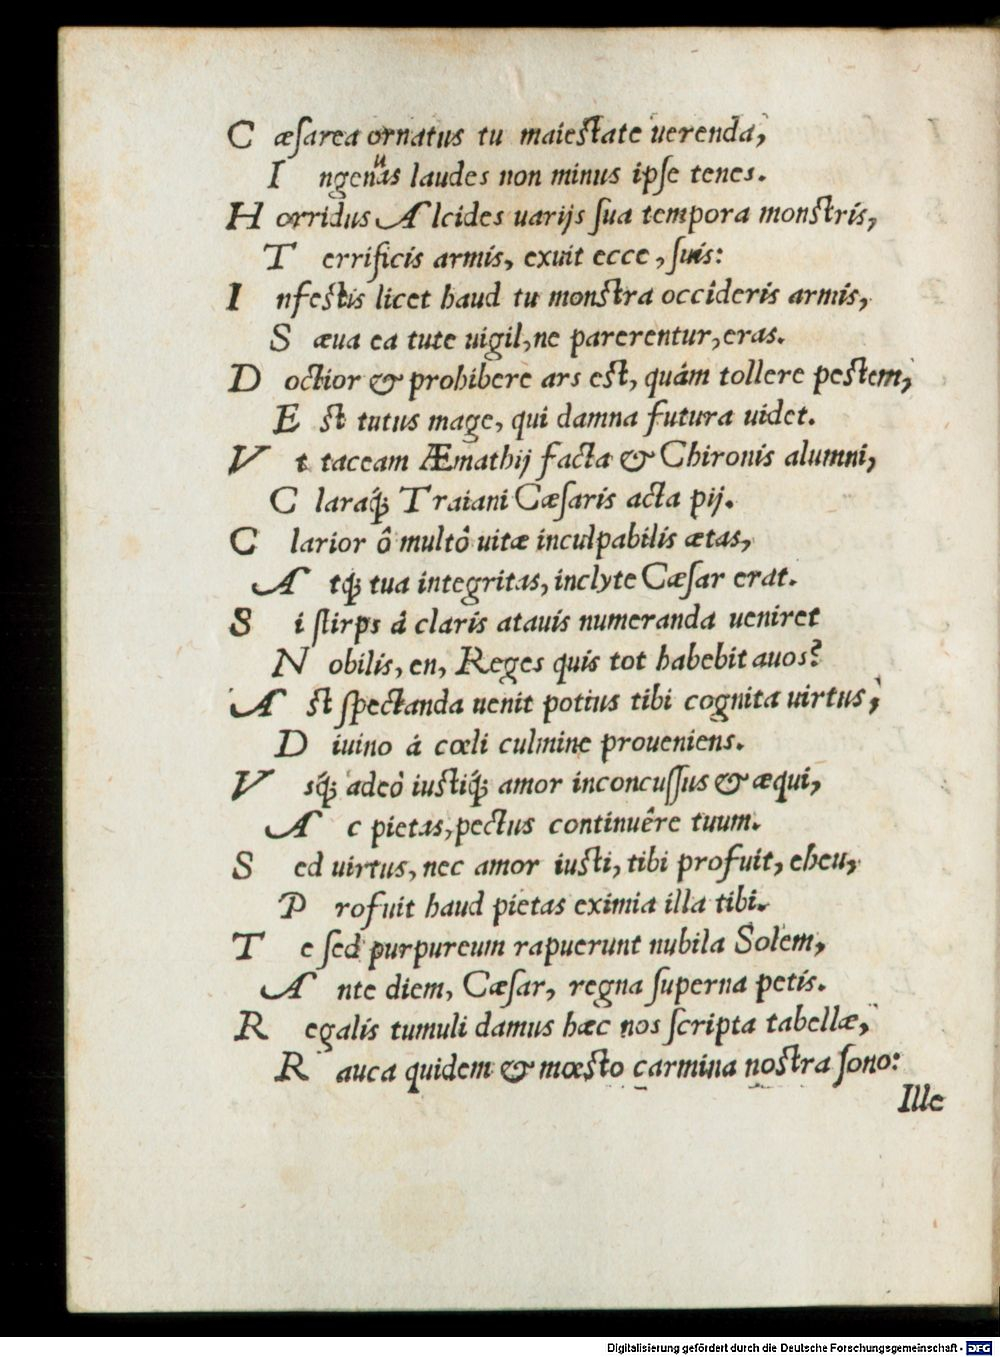 C æſarea ornatus tu maieſtate uerenda,
I ngenuas laudes non minus ipſe tenes.
H orridus Alcides uarijs ſua tempora monſtris,
T errificis armis, exuit ecce, ſuis:
I nfeſtis licet haud tu monſtra occîderis armis,
S æua ea tute uigil, ne parerentur, eras.
D octior & prohibere ars eſt, quám tollere peſtem,
E ſt tutus mage, qui damna futura uidet.
V t taceam Æmathij facta & Chironis alumni,
C laraq́; Traiani Cæſaris acta pij.
C larior ô multô uitæ inculpabilis ætas,
A tq́; tua integritas, inclyte Cæſar erat.
S i ſtirps á claris atauis numeranda ueniret
N obilis, en, Reges quis tot habebit auos?
A ſt ſpectanda uenit potius tibi cognita uirtus,
D iuino á cœli culmine proueniens.
V sq́; adeô iuſtiq́; amor inconcuſſus & æqui,
A c pietas, pectus continuêre tuum.
S ed uirtus, nec amor iuſti, tibi profuit, eheu,
P rofuit haud pietas eximia illa tibi.
T e ſed purpureum rapuerunt nubila Solem,
A nte diem, Cæſar, regna ſuperna petis.
R egalis tumuli damus hæc nos ſcripta tabellæ,
R auca quidem & mœſto carmina noſtra ſono:
Ille
Digitalisierung gefördert durch die Deutsche Forschungsgemeinschaft - DFG